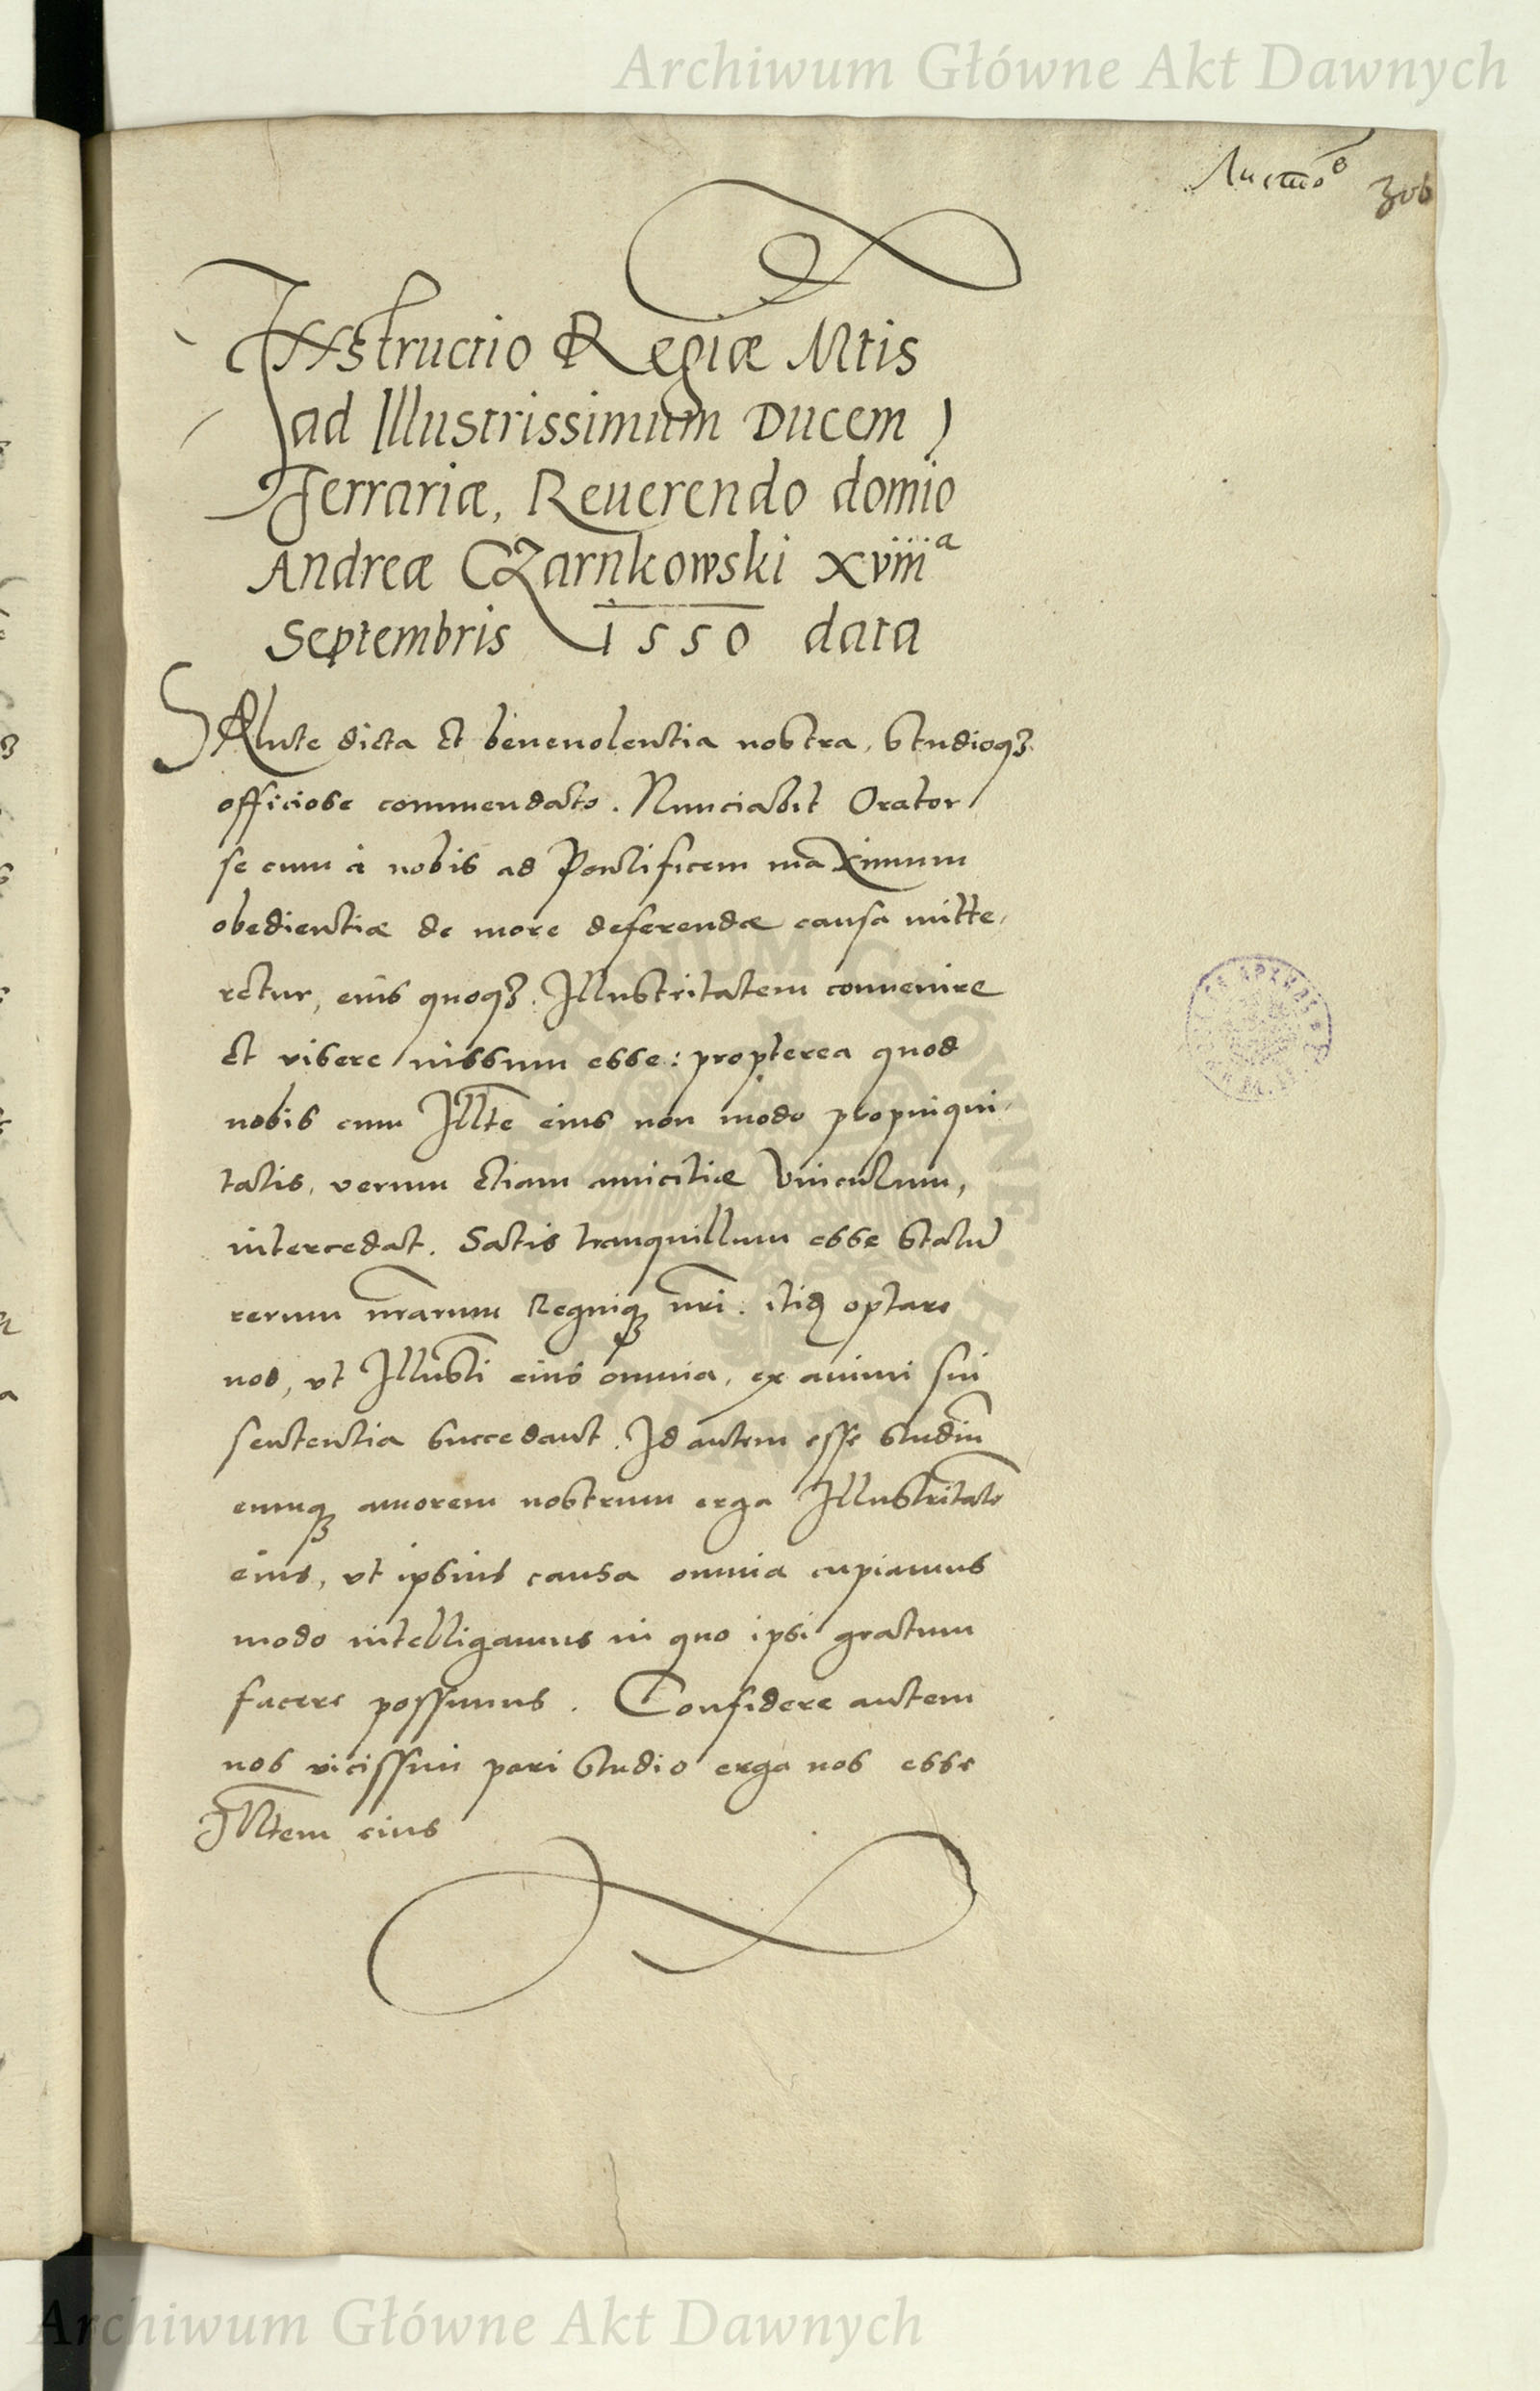 Archiwum Główne Akt Dawnych
Листов 306
Instructio Regiæ Mtis
ad Illustrissimum Ducem
Ferrariæ, Reuerendo domio
Andreæ Czarnkowski xviiiª
Septembris 1550 data
SAlute dicta et beneuolentia nostra, studioqꝫ
officiose commendato. Nunciabit Orator
se cum a nobis ad Pontificem maximum
obedientiæ de more deferendæ causa mitte,
retur, eius quoqꝫ Illustritatem conuenire
et visere iussum esse: propterea quod
nobis cum Illte eius non modo propinqui,
tatis, verum etiam amicitiæ vinculum,
intercedat. Satis tranquillum esse statū
rerum nr̄arum Regniqꝫ nr̄i. itiđ optare
nos, vt Illusti eius omnia, ex animi sui
sententia succedant. Id autem esse studiū
eumqꝫ amorem nostrum erga Illustritatē
eius, vt ipsius causa omnia cupiamus
modo intelligamus in quo ipsi gratum
facere possimus. Confidere autem
nos vicissim pari studio erga nos esse
Illtem eius
Archiwum Główne Akt Dawnych